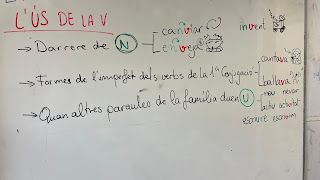 L'ÚS DE LA V
→ Darrere de N canviar enveja invent
→ Formes de l'imperfet dels verbs de la 1ª Conjugació cantava ballava
→ Quan altres paraules de la família duen V nou nevar
actiu activitat
escriure escrivim